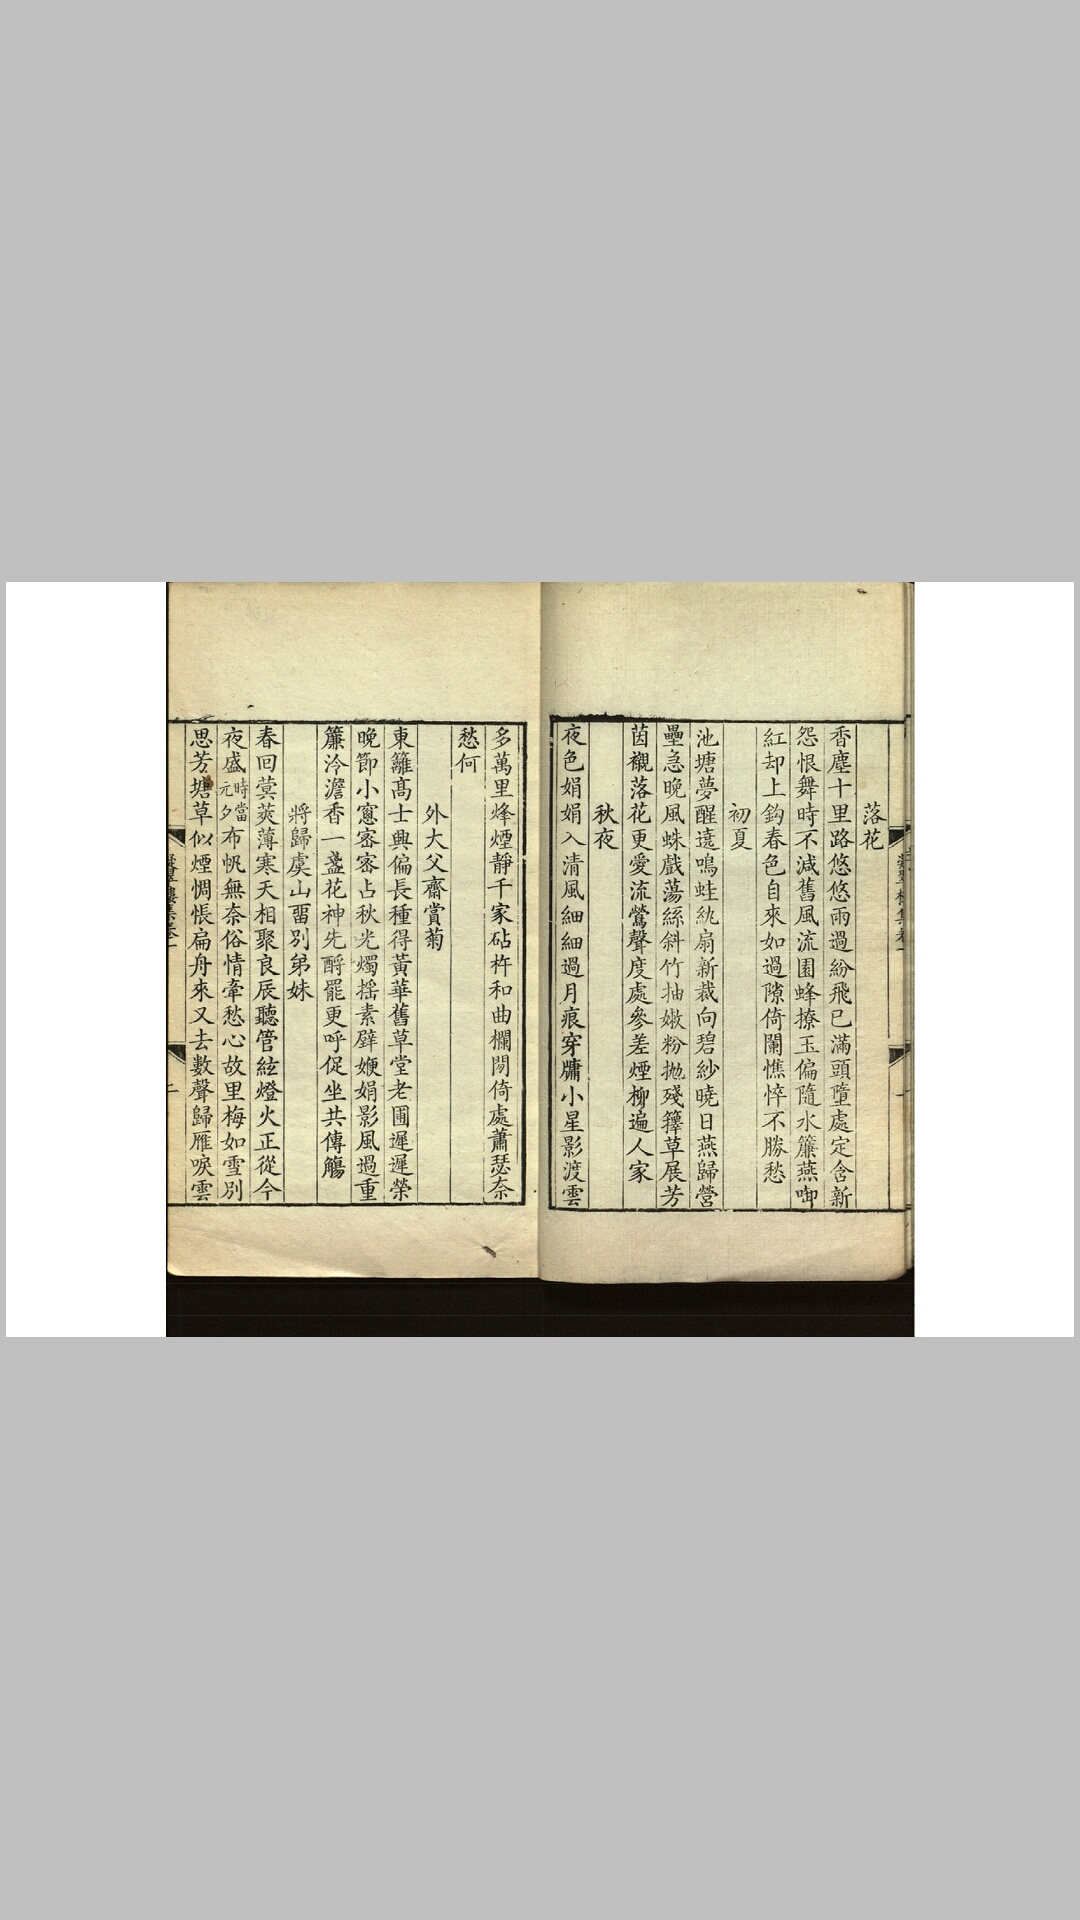 落花
香塵十里路悠悠雨過紛飛已滿頭墮處定含新
怨恨舞時不減舊風流園蜂撩玉偏隨水簾燕啣
紅却上鈎春色自來如過隙倚闌憔悴不勝愁
初夏
池塘夢醒遠鳴蛙紈扇新裁向碧紗曉日燕歸營
壘急晚風蛛戲蕩絲斜竹抽嫩粉拋殘籜草展芳
茵襯落花更愛流鶯聲度處參差煙柳遍人家
秋夜
夜色娟娟入清風細細過月痕穿牖小星影渡雲
多萬里烽煙靜千家砧杵和曲欄閒倚處蕭瑟奈
愁何
外大父齋賞菊
東籬髙士興偏長種得黃華舊草堂老圃遲遲榮
晚節小窻密密占秋光燭摇素壁㛹娟影風過重
簾泠澹香一盞花神先酹罷更呼促坐共傳觴
將歸虞山畱別弟妹
春回蓂莢薄寒天相聚良辰聽管絃燈火正從今
夜盛時當元夕布帆無奈俗情牽愁心故里梅如雪別
思芳塘草似煙惆悵扁舟來又去數聲歸雁唳雲